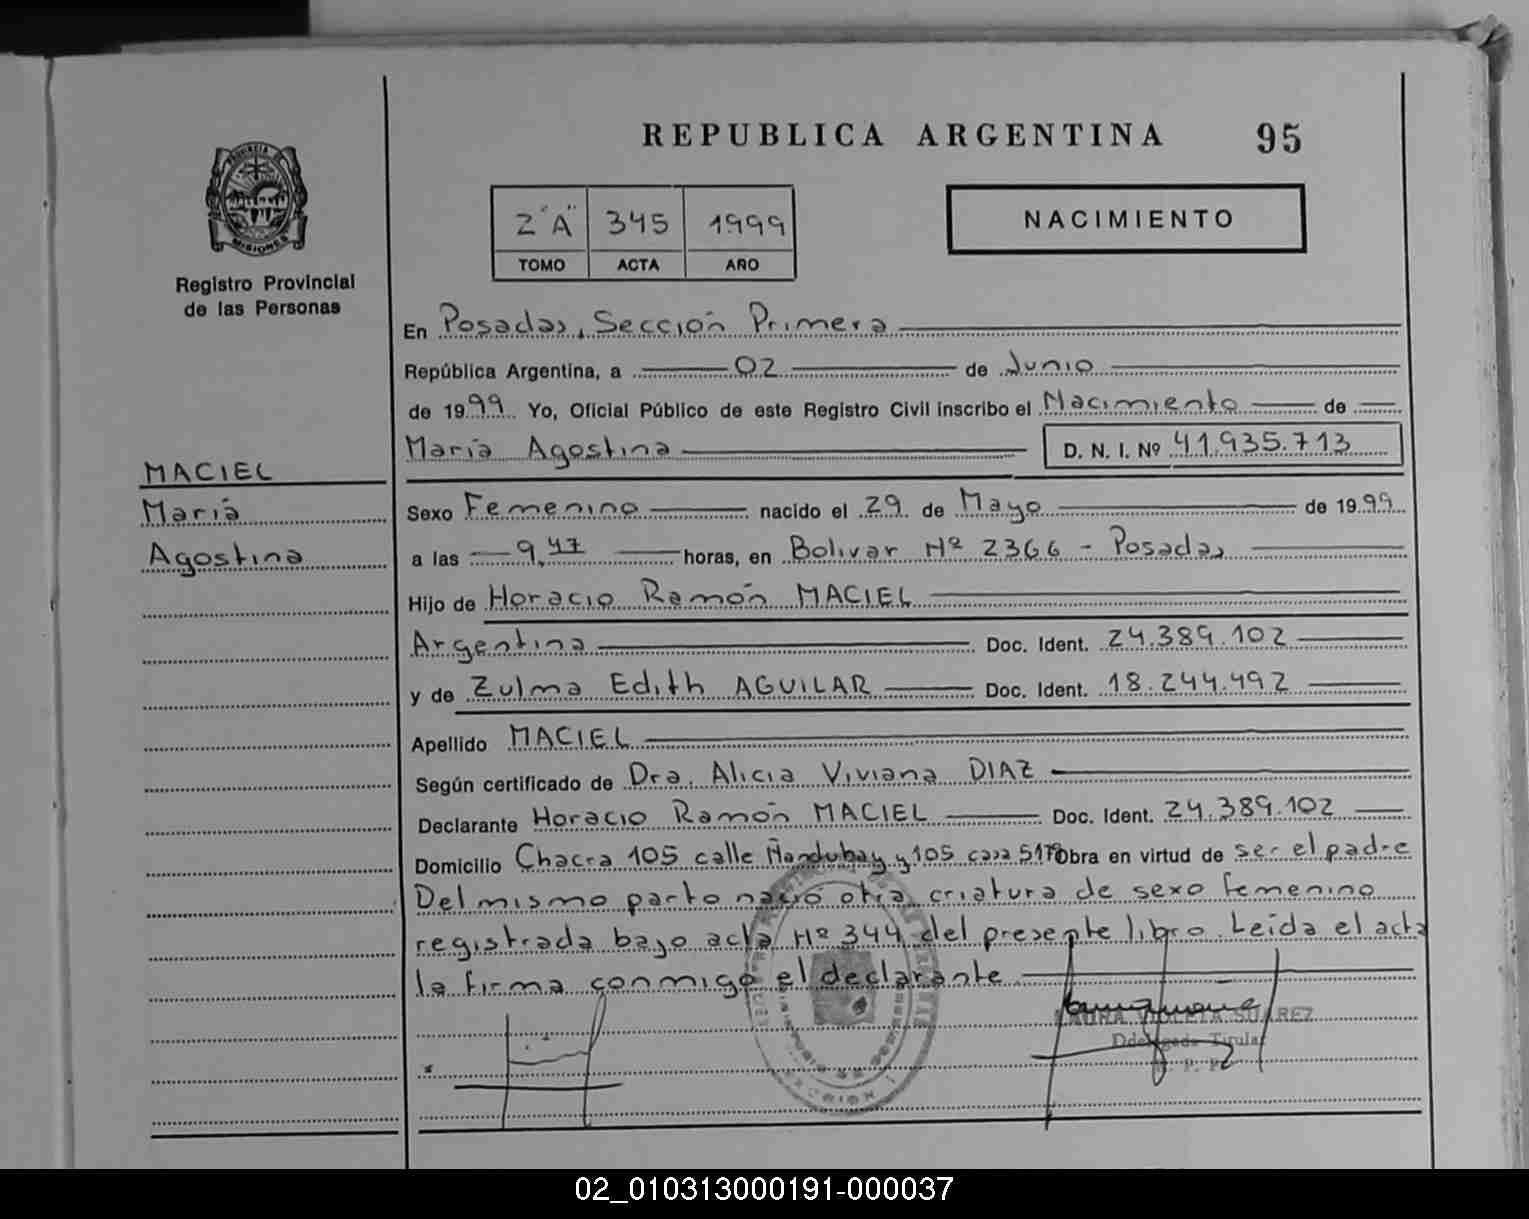 REPUBLICA ARGENTINA 95
PROVINCIA DE
MISIONES
Registro Provincial
de las Personas
2 "A" 345 1999
TOMO ACTA AÑO
NACIMIENTO
En Posadas, Sección Primera
República Argentina, a 02 de Junio
de 1999 Yo, Oficial Público de este Registro Civil inscribo el Nacimiento de
María Agostina D. N. I. Nº 41.935.713
MACIEL
María
Agostina
Sexo Femenino nacido el 29 de Mayo de 1999
a las 9,47 horas, en Bolivar Nº 2366 - Posadas
Hijo de Horacio Ramón MACIEL
Argentina Doc. Ident. 24.389.102
y de Zulma Edith AGUILAR Doc. Ident. 18.244.492
Apellido MACIEL
Según certificado de Dra. Alicia Viviana DIAZ
Declarante Horacio Ramón MACIEL Doc. Ident. 24.389.102
Domicilio Chacra 105 calle Ñandubay y 105 casa Obra en virtud de ser el padre
Del mismo parto nació otra criatura de sexo femenino
registrada bajo acta Nº 344 del presente libro. Leída el acta
la firma conmigo el declarante
LAURA VIOLETA SUAREZ
Titular
02_010313000191-000037